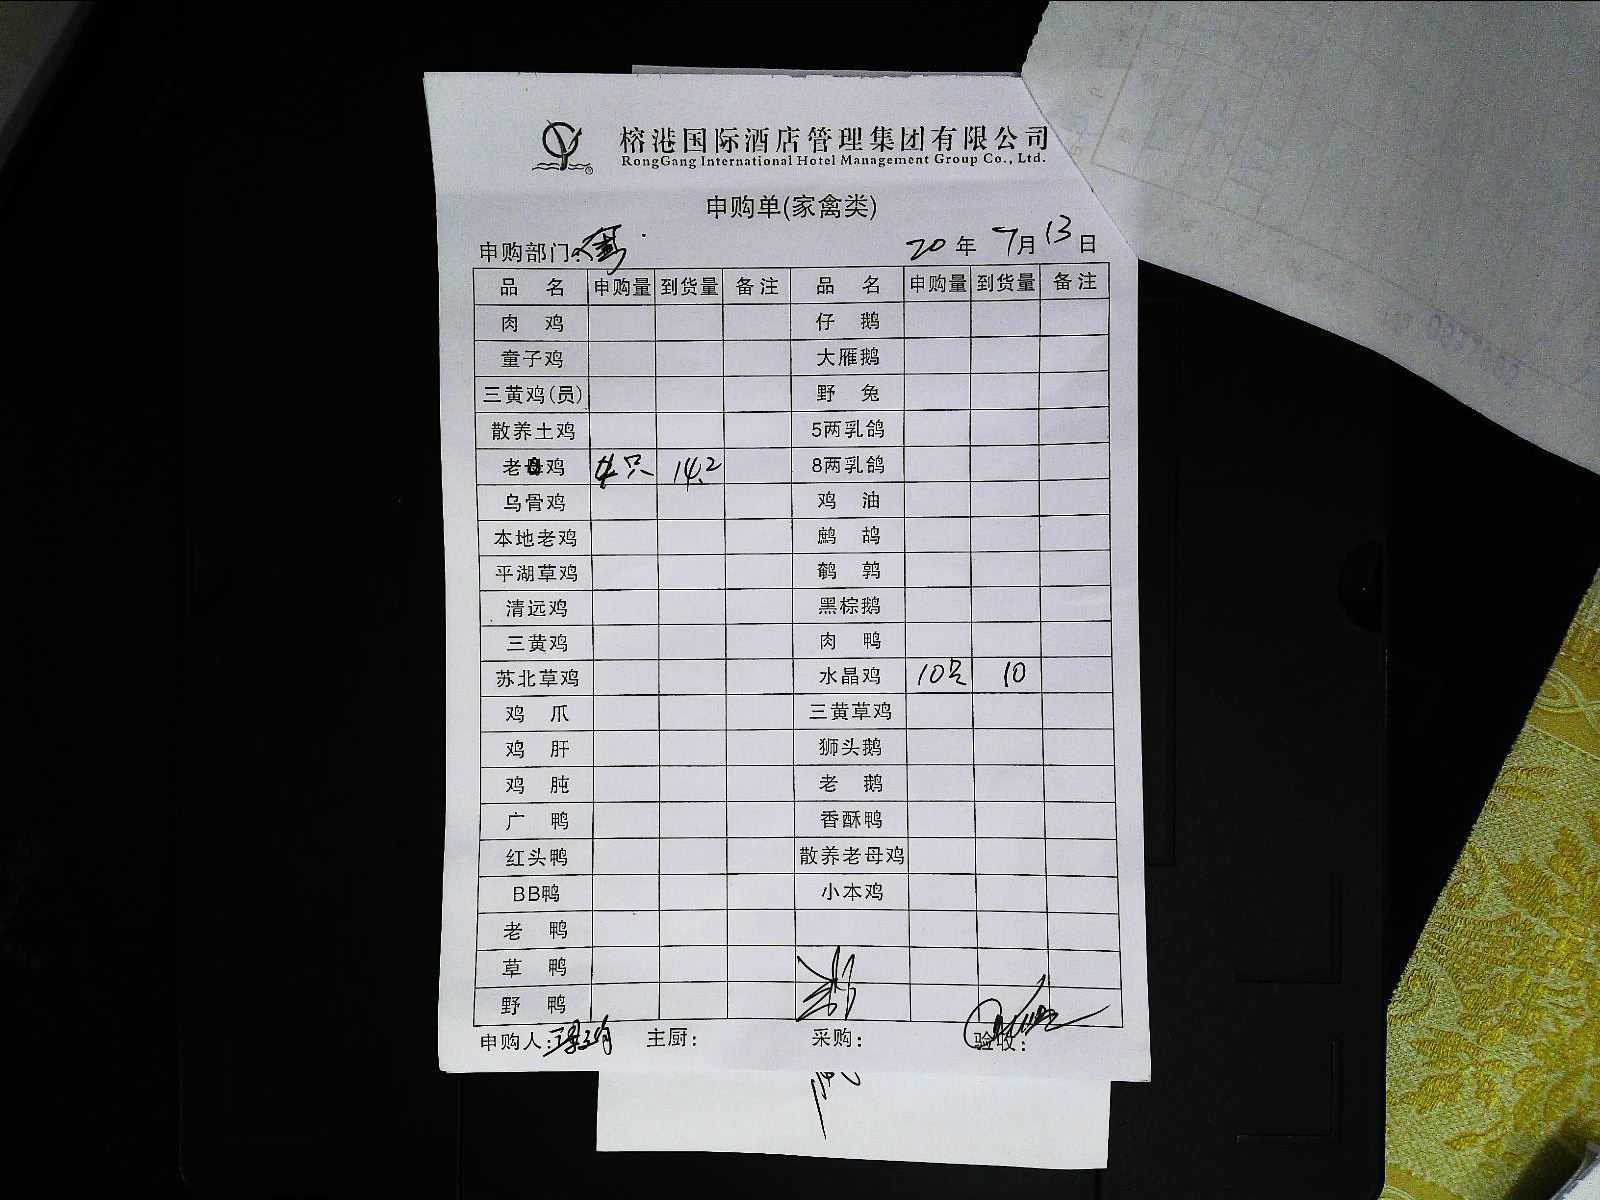 榕港国际酒店管理集团有限公司
RongGang International Hotel Management Group Co., Ltd.
申购单(家禽类)
申购部门: 20 年 7 月 13 日
品 名 申购量 到货量 备注 品 名 申购量 到货量 备注
肉 鸡 仔 鹅
童子鸡 大雁鹅
三黄鸡(员) 野 兔
散养土鸡 5两乳鸽
老母鸡 4只 14.2 8两乳鸽
乌骨鸡 鸡 油
本地老鸡 鹧 鸪
平湖草鸡 鹌 鹑
清远鸡 黑棕鹅
三黄鸡 肉 鸭
苏北草鸡 水晶鸡 10只 10
鸡 爪 三黄草鸡
鸡 肝 狮头鹅
鸡 肫 老 鹅
广 鸭 香酥鸭
红头鸭 散养老母鸡
BB鸭 小本鸡
老 鸭
草 鸭
野 鸭
申购人: 主厨: 采购: 验收: